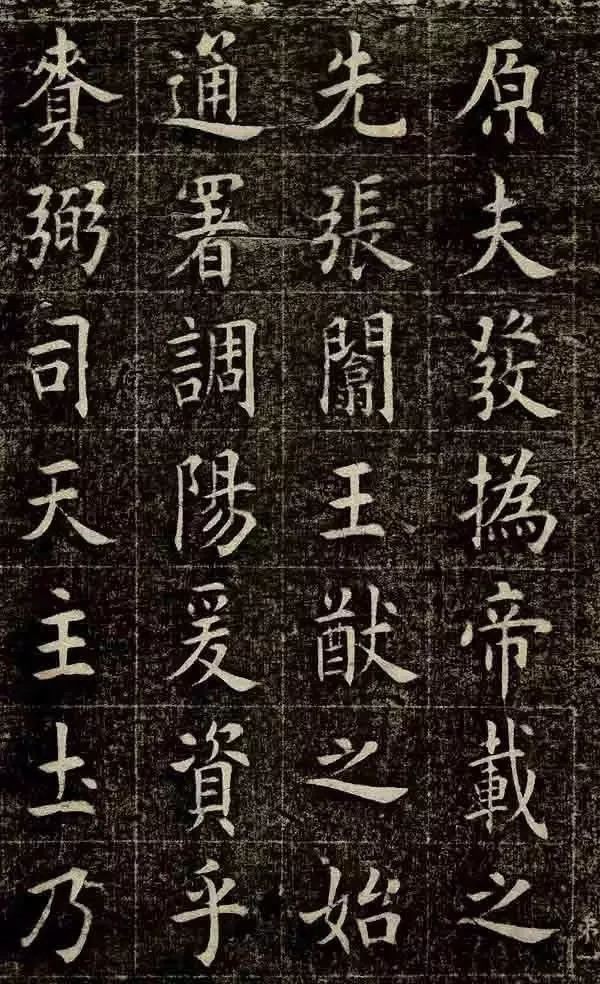 原夫發撝帝載之
先張闡王猷之始
通署調陽爰資乎
賚弼司天主土乃
弟一